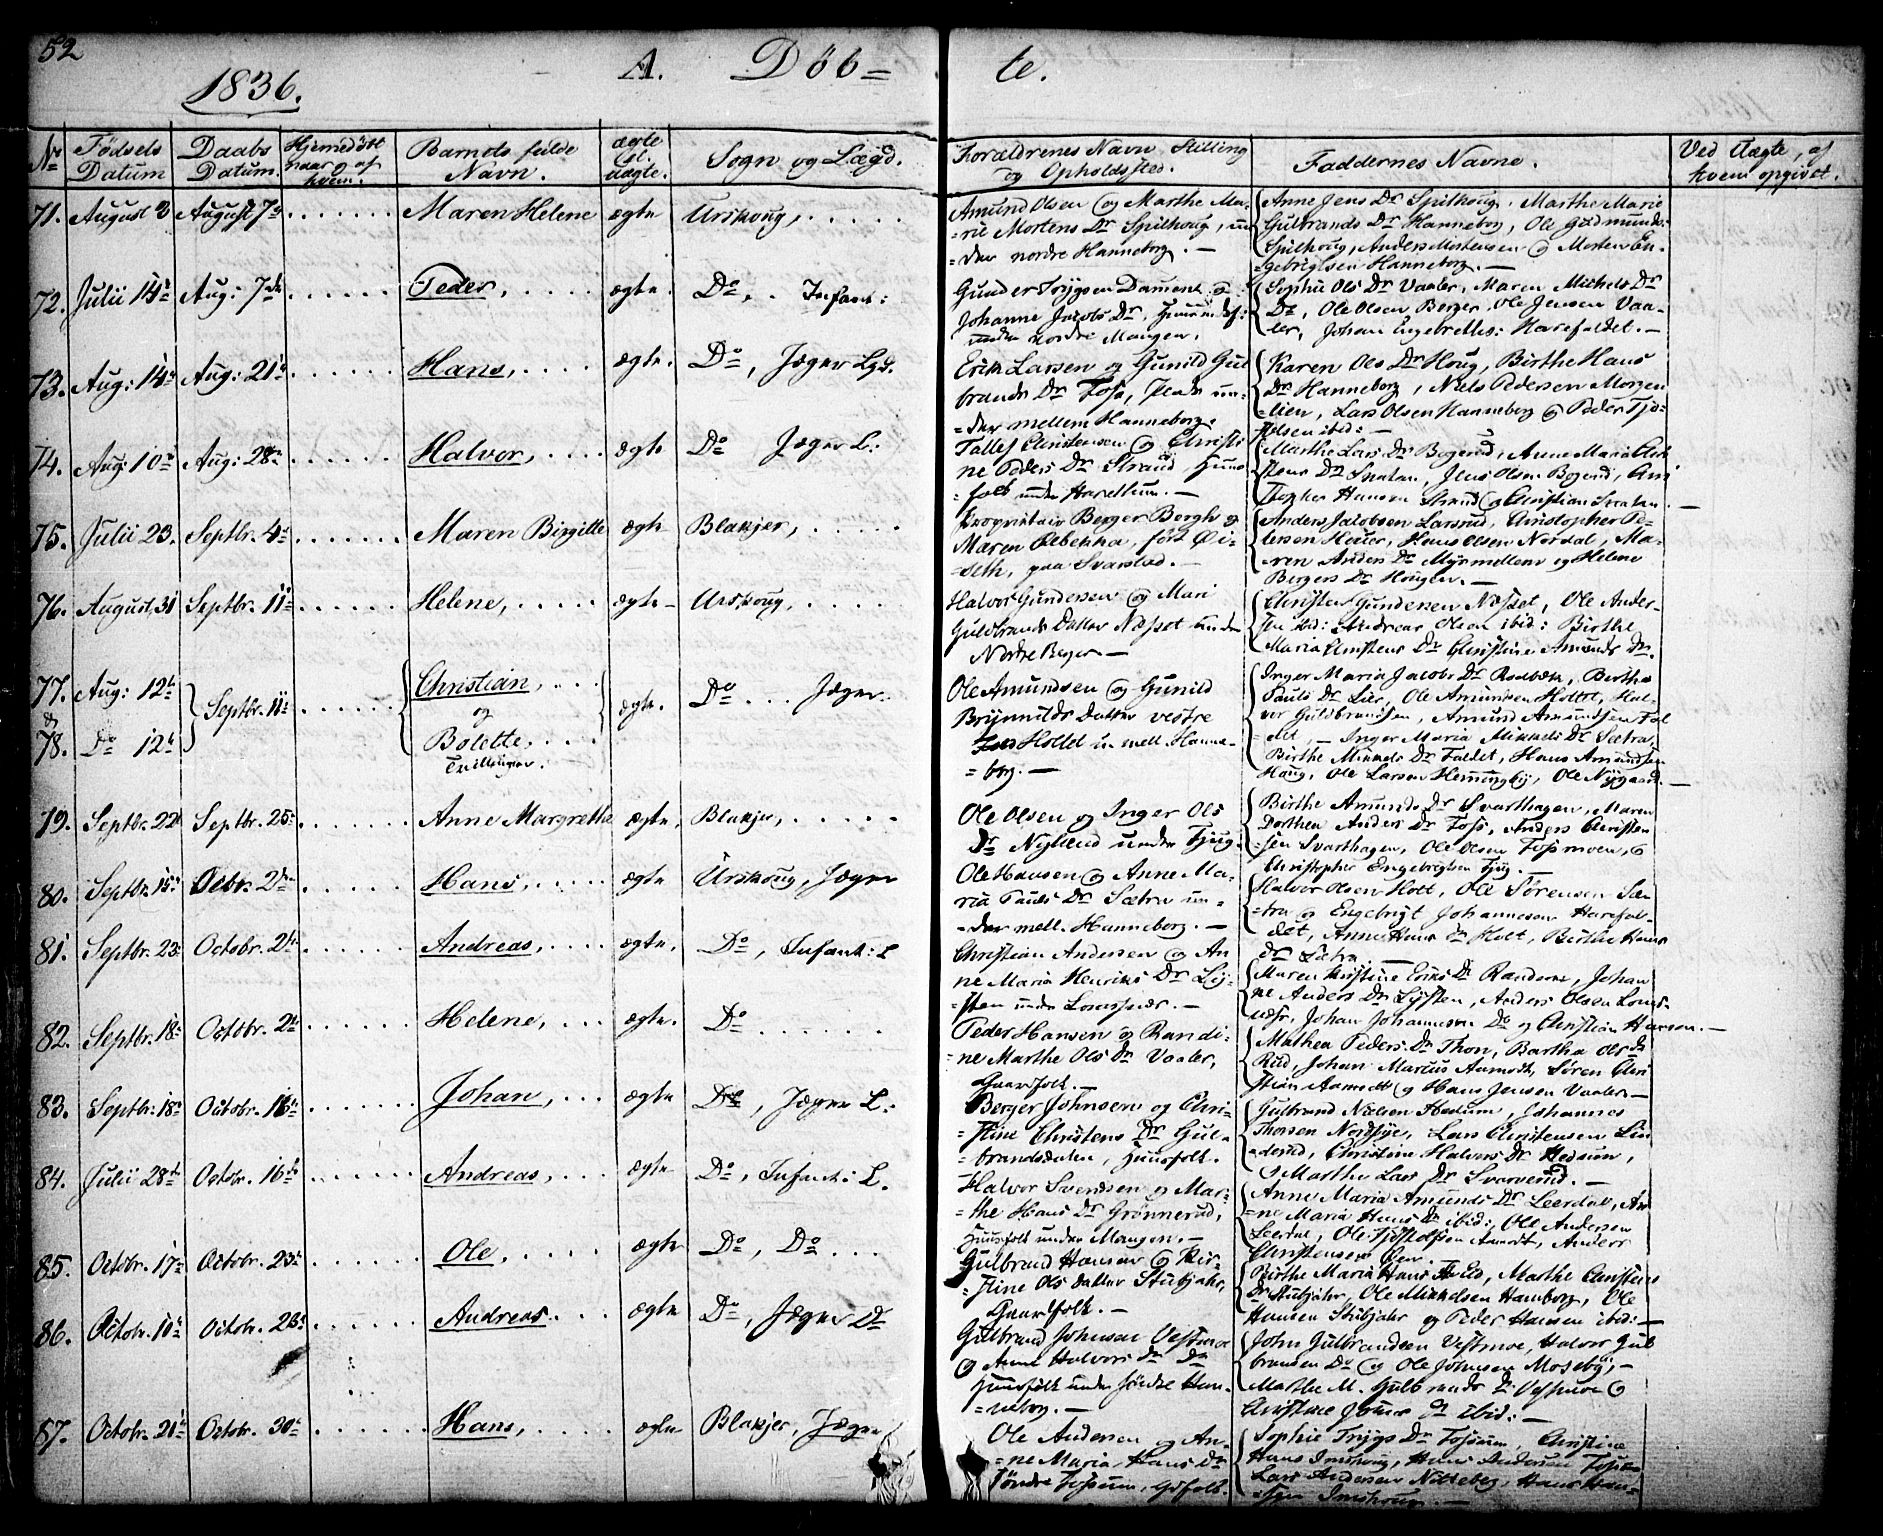 52
1836.
A. Döb=
te.
No
Fødsels Datum
Daabs Datum.
Hjemedöbt naar og af hvem.
Barnets fulde Navn.
ægte el. uægte.
Sogn og Lægd.
Forældrenes Navn Stilling og Opholdssted.
Faddernes Navne.
Ved Uægte, af hvem opgivet.
71. August 3 August 7de Maren Helene ægte Urskoug,
Amund Olsen og Marthe Ma-
=rie Mortens Dr Spilhoug, un
=der nordre Hanneborg. —
Anne Jens Dr Spilhoug, Marthe Marie
Gulbrands Dr Hanneborg, Ole Gudmunds:
Spilhoug, Anders Mortensen og Morten En-
=gebrigtsen Hanneborg. —
72. Julii 14de Aug: 7de Peder, ægte. Do, Infant:
Gunder Trygsen Dament og
Johanne Jacobs Dr, Huusmdsf:
under nordre Mangen.
Sophie Ols Dr Vaaler, Maren Michels Dr
Do, Ole Olsen Berger, Ole Jensen Vaa-
ler, Johan Engebretts: Harefaldet. —
73. Aug: 14de Aug: 21de Hans, ægte. Do, Jæger Lgd.
Erik Larsen og Gunild Gul
brands Dr Foss, Plads un-
=der mellem Hanneborg.
Karen Ols Dr Houg, Birthe Hans
Dr Hanneborg, Niels Pedersen Morgen
=lien, Lars Olsen Hanneborg og Peder Tjø-
stelsen ibid: —
74. Aug: 10de Aug: 28de Halvor, ægte Do Jæger L:
Tallef Christensen og Christi
ne Peders Dr Strand, Huus
=folk under Harellum. —
Marthe Lars Dr Bogerud, Anne Maria Chri
stens Dr Snatan, Jens Olsen Bogerud, Chri
stopher Hansen Strand og Christian Snatan. —
75. Julii 23. Septbr. 4de Maren Birgitte ægte Blakjer,
Proprietair Berger Bergh og
Maren Rebekka, født Øi-
=seth, paa Svarstad. —
Anders Jacobsen Larsrud, Christopher Pe-
tersen Heier, Hans Olsen Nordal, Ma-
ren Anders Dr Myrmellem og Helene
Bergers Dr Hougen. —
76. August, 31 Septbr. 11te Helene, ægte — Urskoug,
Halvor Gundersen og Mari
Guldbrands Datter Næsset under
Nordre Beger —
Christen Gundersen Næsset, Ole Ander-
sen ibid: Andreas Olsen ibid: Birthe
Maria Christens Dr Christine Amunds Dr.
77. Aug: 12te
&
78. Do 12te
Septbr. 11te
Christian,
og
Bolette,
Tvillinger.
ægte. Do Jæger
Ole Amundsen og Gunild
Brynnilds Datter vestre
Hollet u. mell. Hanne-
=borg. —
Inger Maria Jacobs Dr Rodbæk, Birthe
Pauls Dr Lier, Ole Amundsen Hollet, Hal-
vor Guldbrandsen, Amund Amundsen Fal
let, — Inger Maria Mikkels Dr Sætra,
Birthe Mikkels Dr Faldet, Hans Amundsen
Houg, Ole Larsen Hemingbÿ, Ole Nygaard. —
79. Septbr. 22 Septbr. 25de Anne Margrethe ægte, Blakjer,
Ole Olsen og Inger Ols
Dr Nylund under Tjug.
Birthe Amunds Dr Svarthagen, Maren
Dorthea Anders Dr Foss, Anders Christen
=sen Svarthagen, Ole Olsen Fossmoen, og
Christopher Engebrigtsen Tjug. —
80. Septbr. 15de Octbr. 2den Hans, ægte Urskoug, Jæger
Ole Hansen og Anne Ma-
ria Pauls Dr Sætra un-
=der mell. Hanneborg. —
Halvor Olsen Holt, Ole Sørensen Sæ-
=tra og Engebrigt Johannesen Harefal-
det, Anne Hans Dr Holt, Birthe Hans
Dr Sætra. —
81. Septbr. 23de Octobr. 2den Andreas, ægte. Do, Infant: L
Christian Andersen og An
ne Maria Henriks Dr Ly-
=sten under Lonæssner. —
Maren Kirstine Eriks Dr Randem, Johan
ne Anders Dr Lysten, Anders Olsen Lonæs-
næss, Johan Johannesen Do og Christian Hansen. —
82. Septbr. 18de Octobr. 2den Helene, ægte. Do
Peder Hansen og Randi-
ne Marthe Ols Dr Vaaler,
Gaardfolk. —
Mathea Peders Dr Thon, Bartha Ols Dr
Riid, Johan Marcus Aamodt, Søren Chri
stian Aamodt og Hans Jensen Vaaler —
83. Septbr. 18de Octobr. 16de Johan, ægte Do, Jæger L:
Berger Johnsen og Chri-
=stine Christens Dr Gul-
brandsdalen, Huusfolk.
Gulbrand Nielsen Hedum, Johannes
Thorsen Nordbye, Lars Christensen Lin
=derud, Christine Halvors Dr Hedum,
og Marthe Lars Dr Svarverud. —
84. Julii 28de Octobr. 16de Andreas, ægte Do, Infant: L.
Halvor Svendsen og Mar-
=the Hans Dr Grønnerud,
Huusfolk under Mangen. —
Anne Maria Amunds Dr Leerdal, An
=ne Maria Hans Dr ibid:, Ole Andersen
Leerdal, Ole Tjøstelsen Aamodt, Anders
Christensen Øien.
85. Octobr. 17de Octobr. 23de Ole, ægte Do, Do
Gulbrand Hansen og Kir-
=stine Ols datter Stubjahr,
Gaardfolk. —
Birthe Maria Hans Dr Eid, Marthe Christens
Dr Stubjahr, Ole Mikkelsen Hamborg, Ole
Hansen Stubjahr og Peder Hansen ibid: —
86. Octobr. 10de Octobr. 23de Andreas ægte Do, Jæger Do
Gulbrand Johnsen Vestmoe
og Anne Halvors Dr Do
Huusfolk under søndre Han-
=neborg. —
John Gulbrandsen Vestmoe, Halvor Gul
bransen Do og Ole Johnsen Mosebÿ, —
Marthe M. Gulbrands Dr Vestmoe og
Christine Johns Dr ibid: —
87. Octobr. 21de Octobr. 30te Hans, ægte Blakjer, Jæger
Ole Andersen og An-
=ne Maria Hans Dr
Söndre Fossum, Gdfolk.
Sophie Trygs Dr Fossum, Christine
Hans Imshoug, Hans Andersen Fossum
Lars Andersen Nitteberg, Hans Han-
=sen Imshoug. —